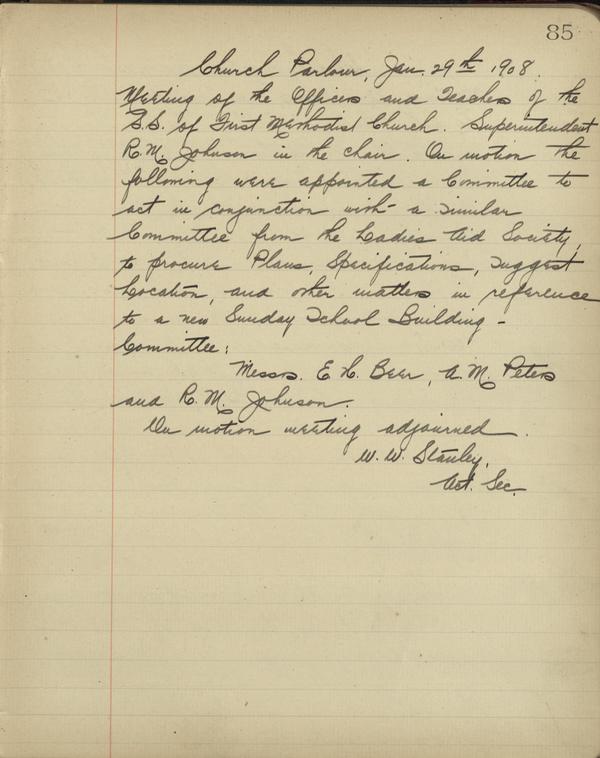 85
Church Parlour, Jan. 29th 1908.
Meeting of the Officers and Teachers of the
S.S. of First Methodist Church. Superintendent
R. M. Johnson in the chair. On motion the
following were appointed a Committee to
act in conjunction with a similar
Committee from the Ladies Aid Society,
to procure Plans, Specifications, suggest
Location, and other matters in reference
to a new Sunday School Building -
Committee:
Messrs. E. H. Beer, A. M. Peters
and R. M. Johnson.
On motion meeting adjourned.
W. W. Stanley,
Act. Sec.